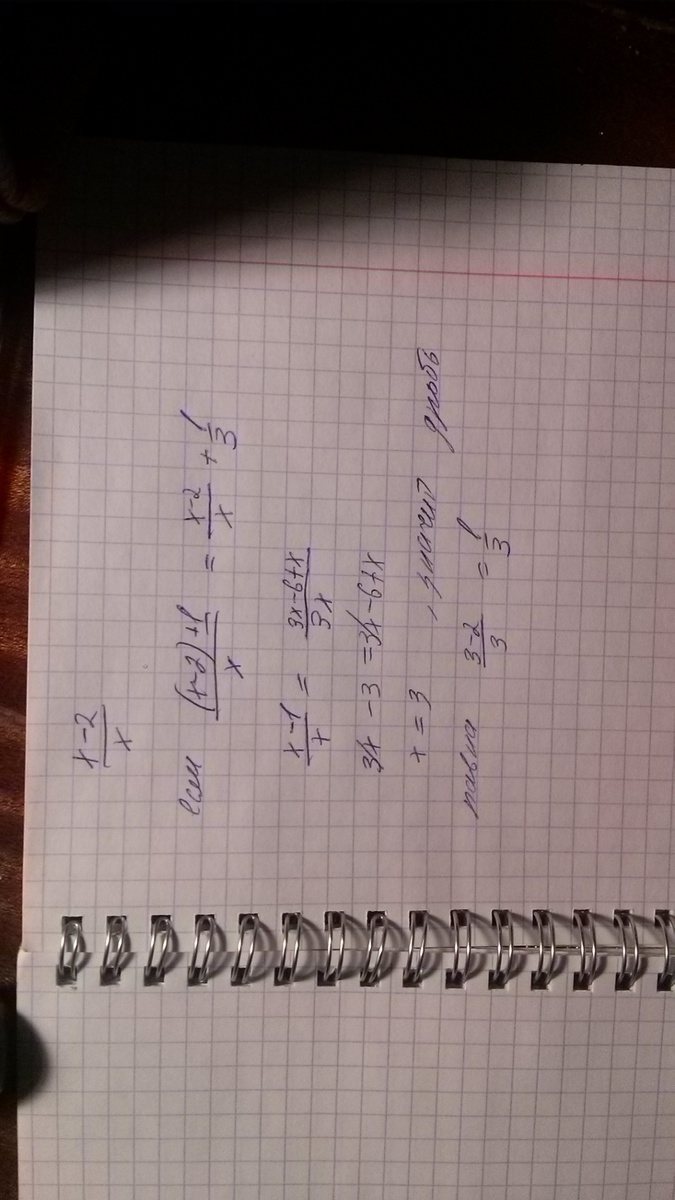 x-2/x
если (x-2)+1/x = x-2/x + 1/3
x-1/x = 3x-6+x/3x
3x-3=3x-6+x
x=3, значит дробь
равна 3-2/3 = 1/3